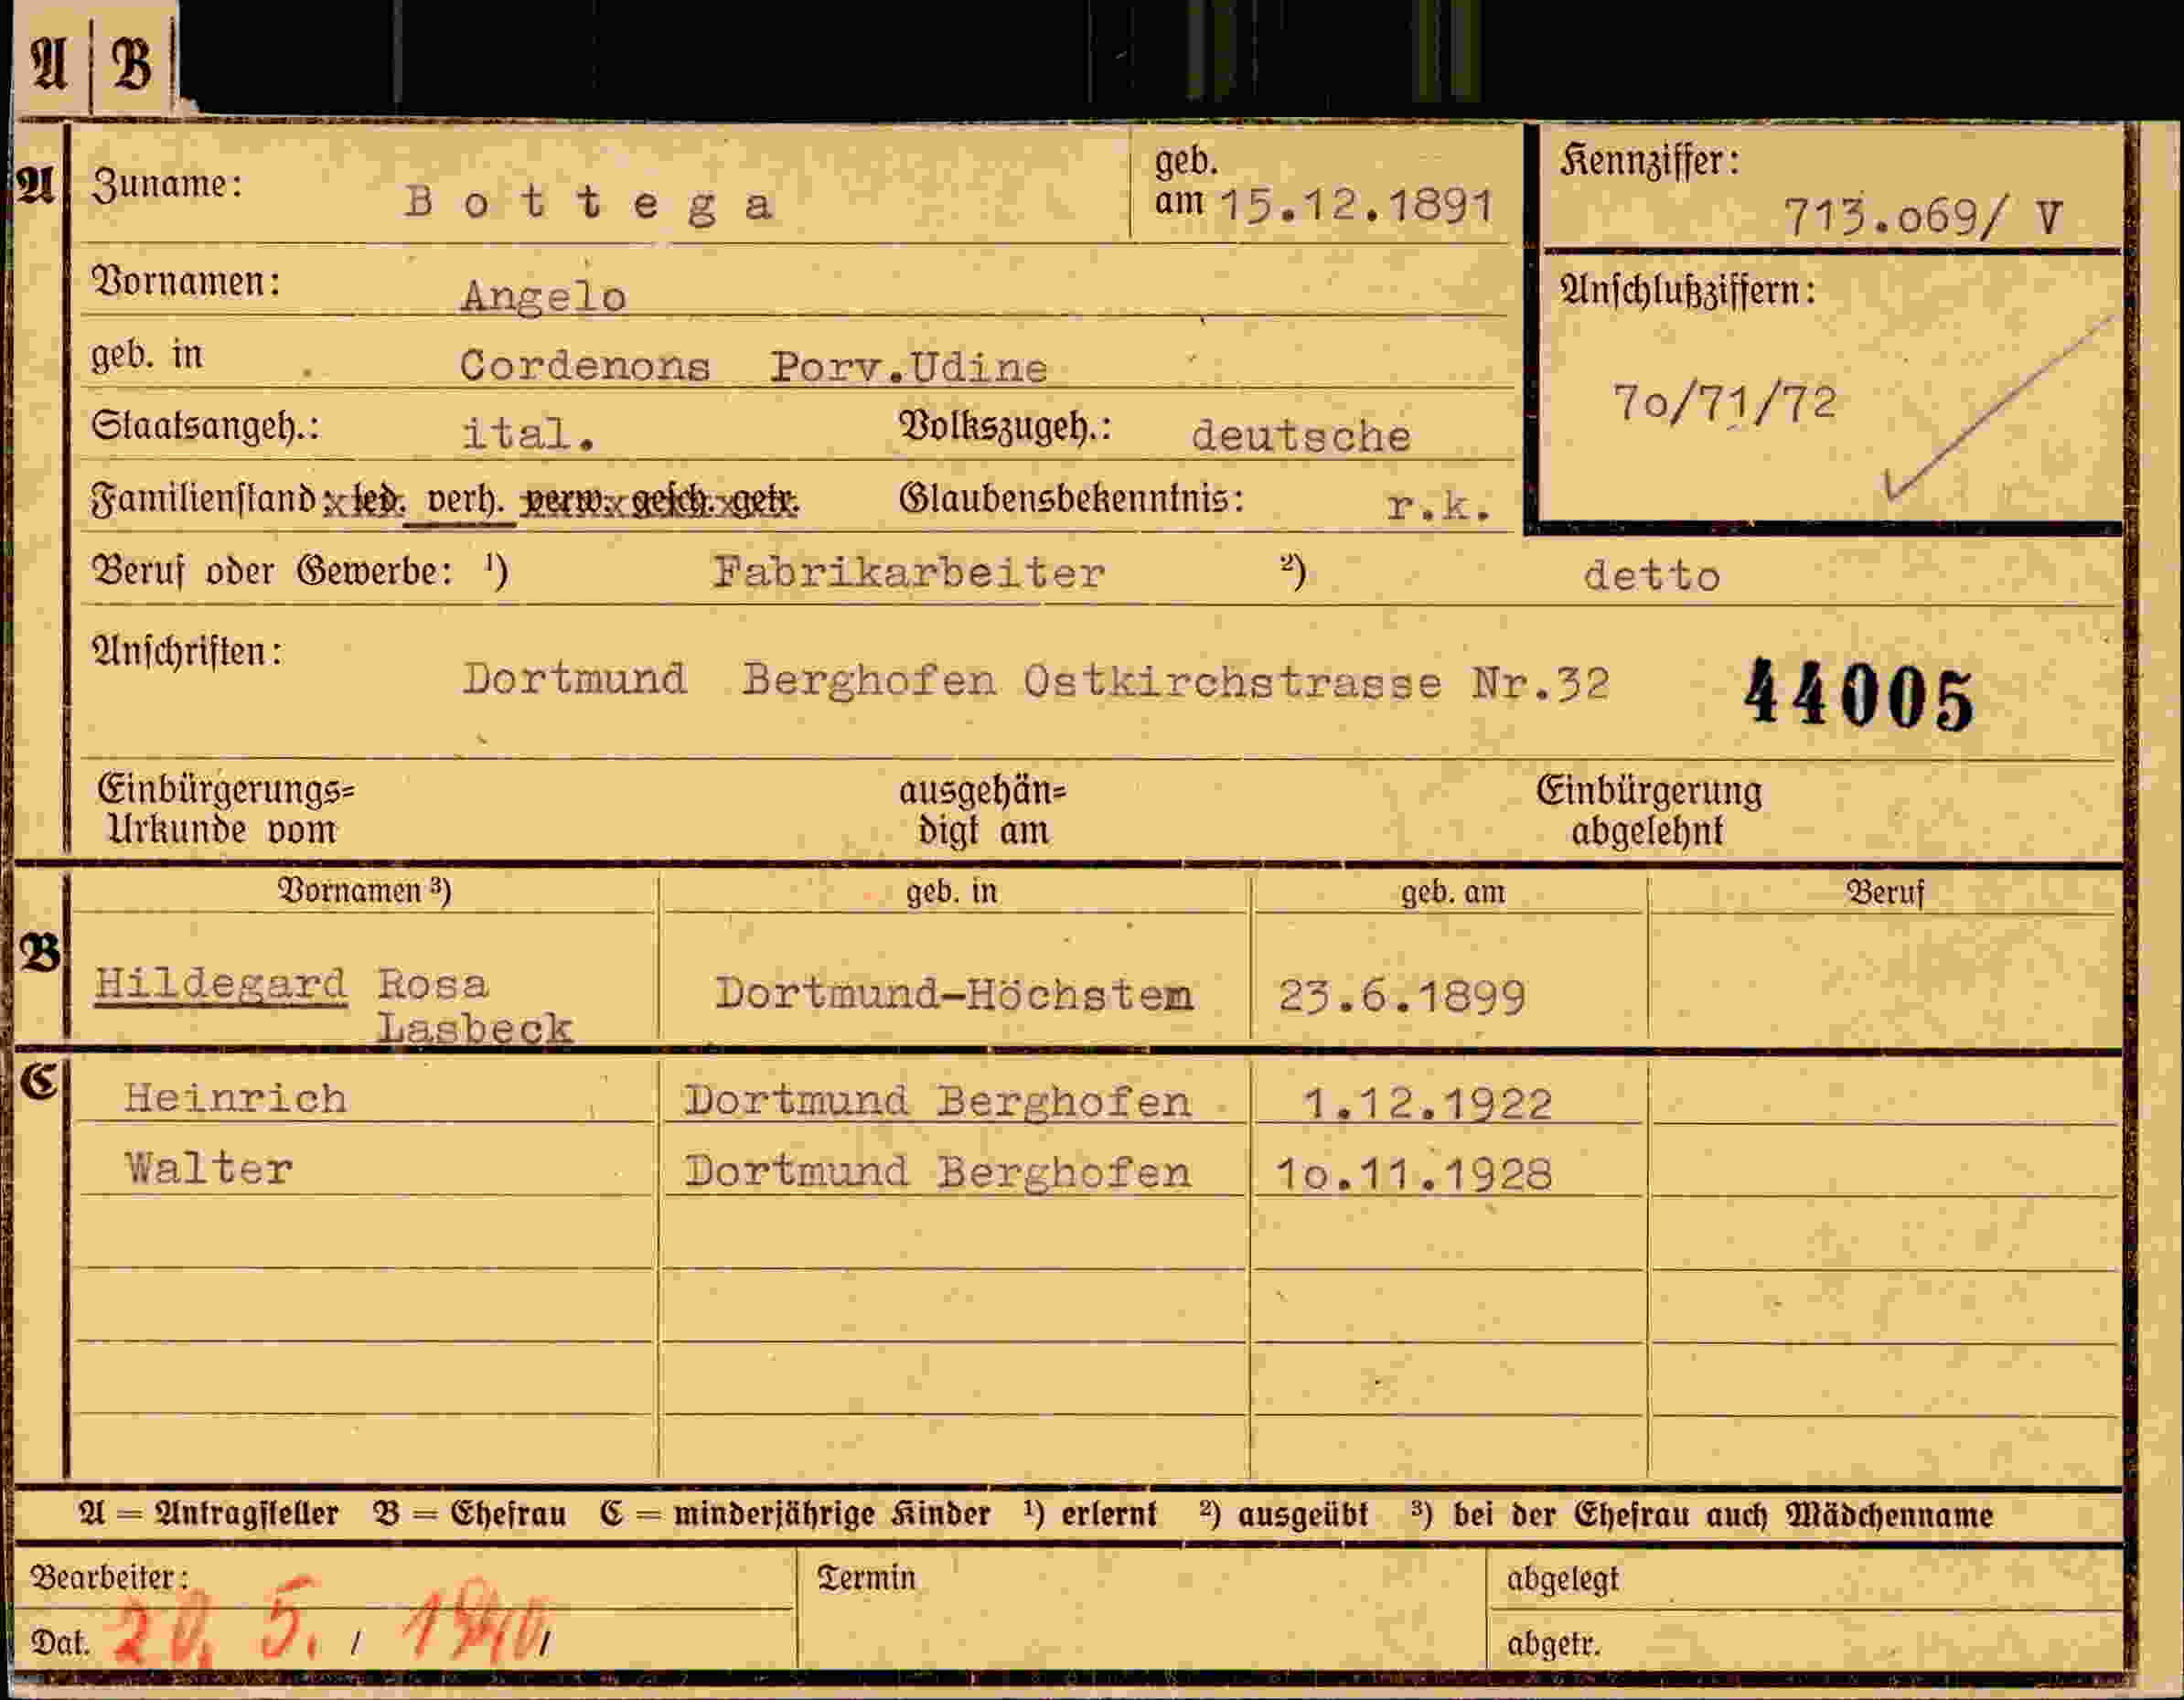 A B
A Zuname: Bottega geb. am 15.12.1891 Kennziffer: 713.o69/ V
Vornamen: Angelo Anschlußziffern:
geb. in Cordenons Porv.Udine 7o/71/72
Staatsangeh.: ital. Volkszugeh.: deutsche
Familienstand: led. verh. verw. gesch. getr. Glaubensbekenntnis: r.k.
Beruf oder Gewerbe: ¹) Fabrikarbeiter ²) detto
Anschriften: Dortmund Berghofen Ostkirchstrasse Nr.32 44005
Einbürgerungs= ausgehän= Einbürgerung
Urkunde vom digt am abgelehnt
Vornamen ³) geb. in geb. am Beruf
B Hildegard Rosa Dortmund-Höchstem 23.6.1899
Lasbeck
C Heinrich Dortmund Berghofen 1.12.1922
Walter Dortmund Berghofen 1o.11.1928
A = Antragsteller B = Ehefrau C = minderjährige Kinder ¹) erlernt ²) ausgeübt ³) bei der Ehefrau auch Mädchenname
Bearbeiter: Termin abgelegt
Dat. 20. 5. / 1940 / abgetr.